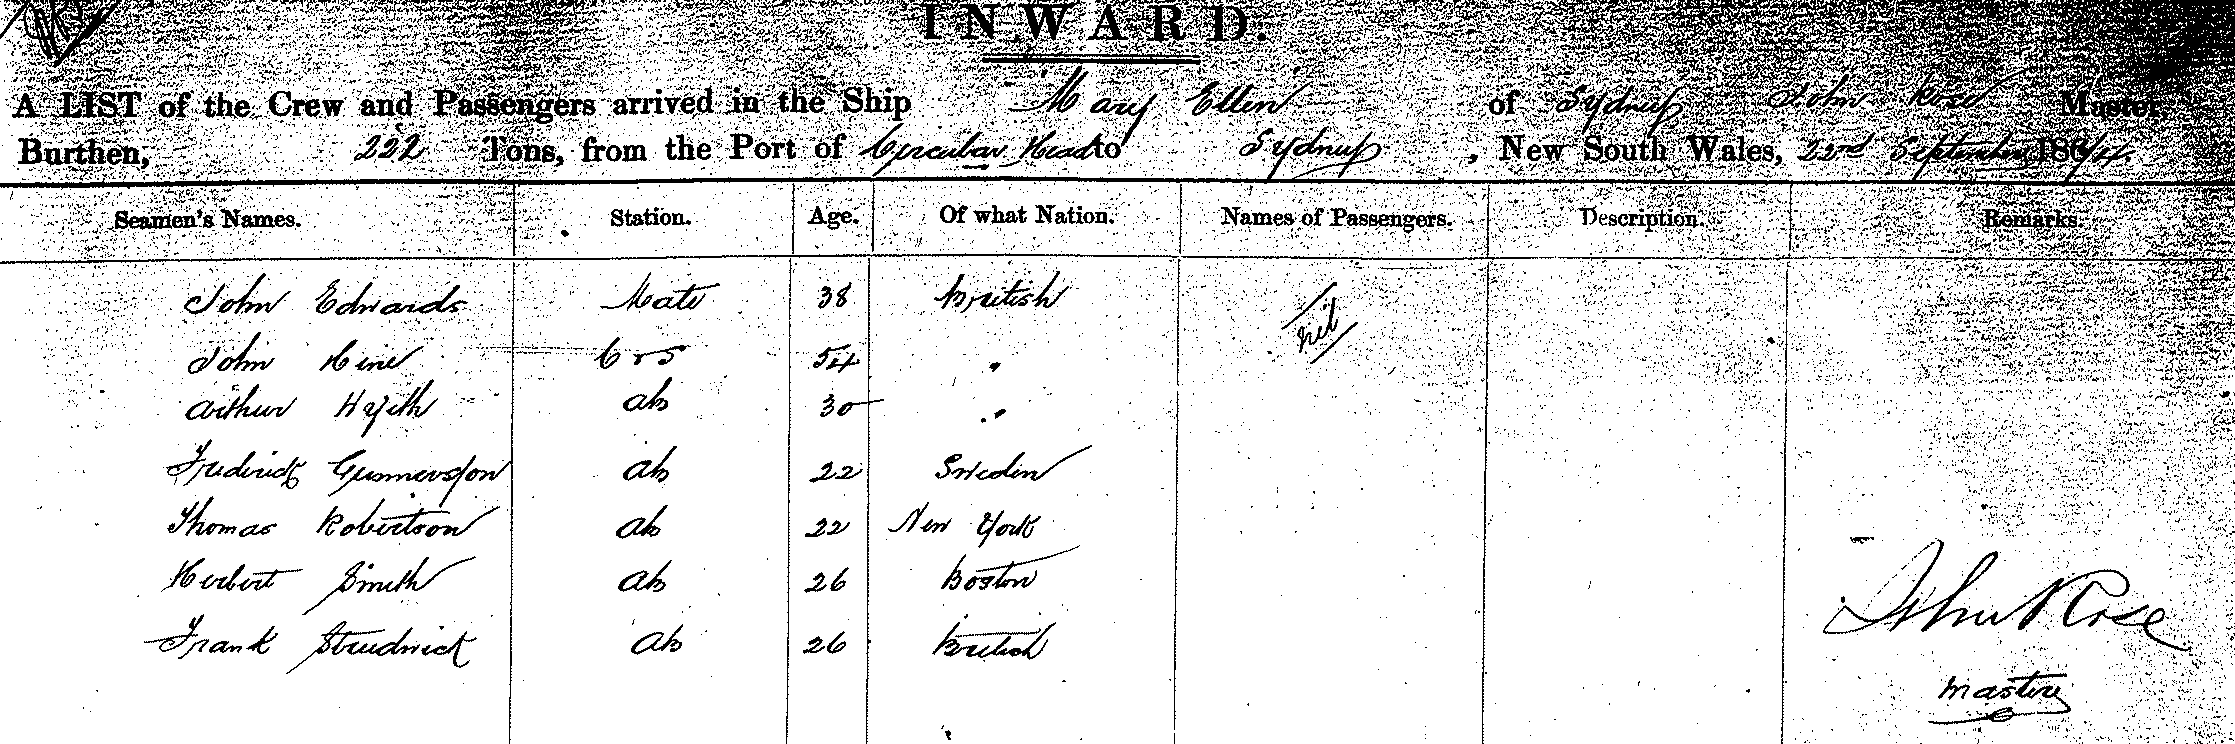 INWARD.
A LIST of the Crew and Passengers arrived in the Ship Mary Ellen of Sydney John Rose Master,
Burthen, 222 Tons, from the Port of Circular Head to Sydney, New South Wales, 22nd September 18
Seamen's Names. Station. Age. Of what Nation. Names of Passengers. Description. Remarks.
John Edwards Mate 38 British nil
John 54 "
Arthur 30 "
Frederick ab 22 Sweden
Thomas Robertson ab 22 New York
Herbert Smith ab 26 Boston
Frank Strudwick ab 26 British
John Rose
Master